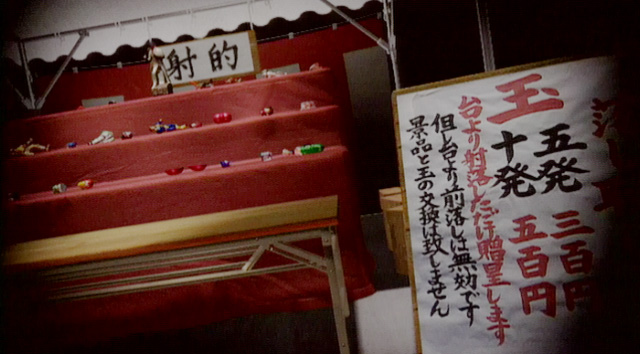 射的
玉
五発 三百円
十発 五百円
台より射落しただけ贈呈します
但し台より前落しは無効です
景品と玉の交換は致しません